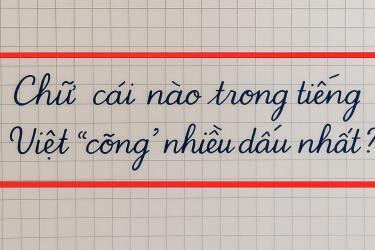 Chữ cái nào trong tiếng
Việt “cõng’ nhiều dấu nhất?